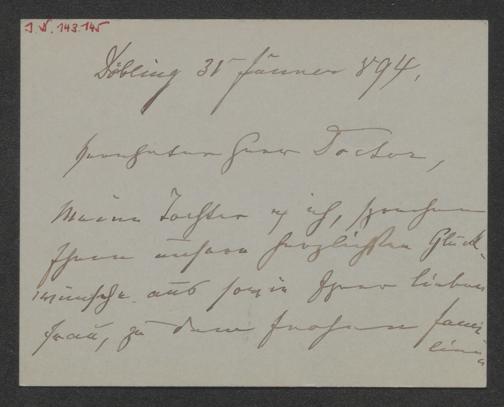 J.N. 143.145
Döbling 31 Jänner 894,
Herr Doctor,
Meine Tochter u ich, sprechen
Ihnen unsere herzlichsten Glück-
wünsche aus sowie Ihrer lieben
Frau, zu dem frohen Fami
lien